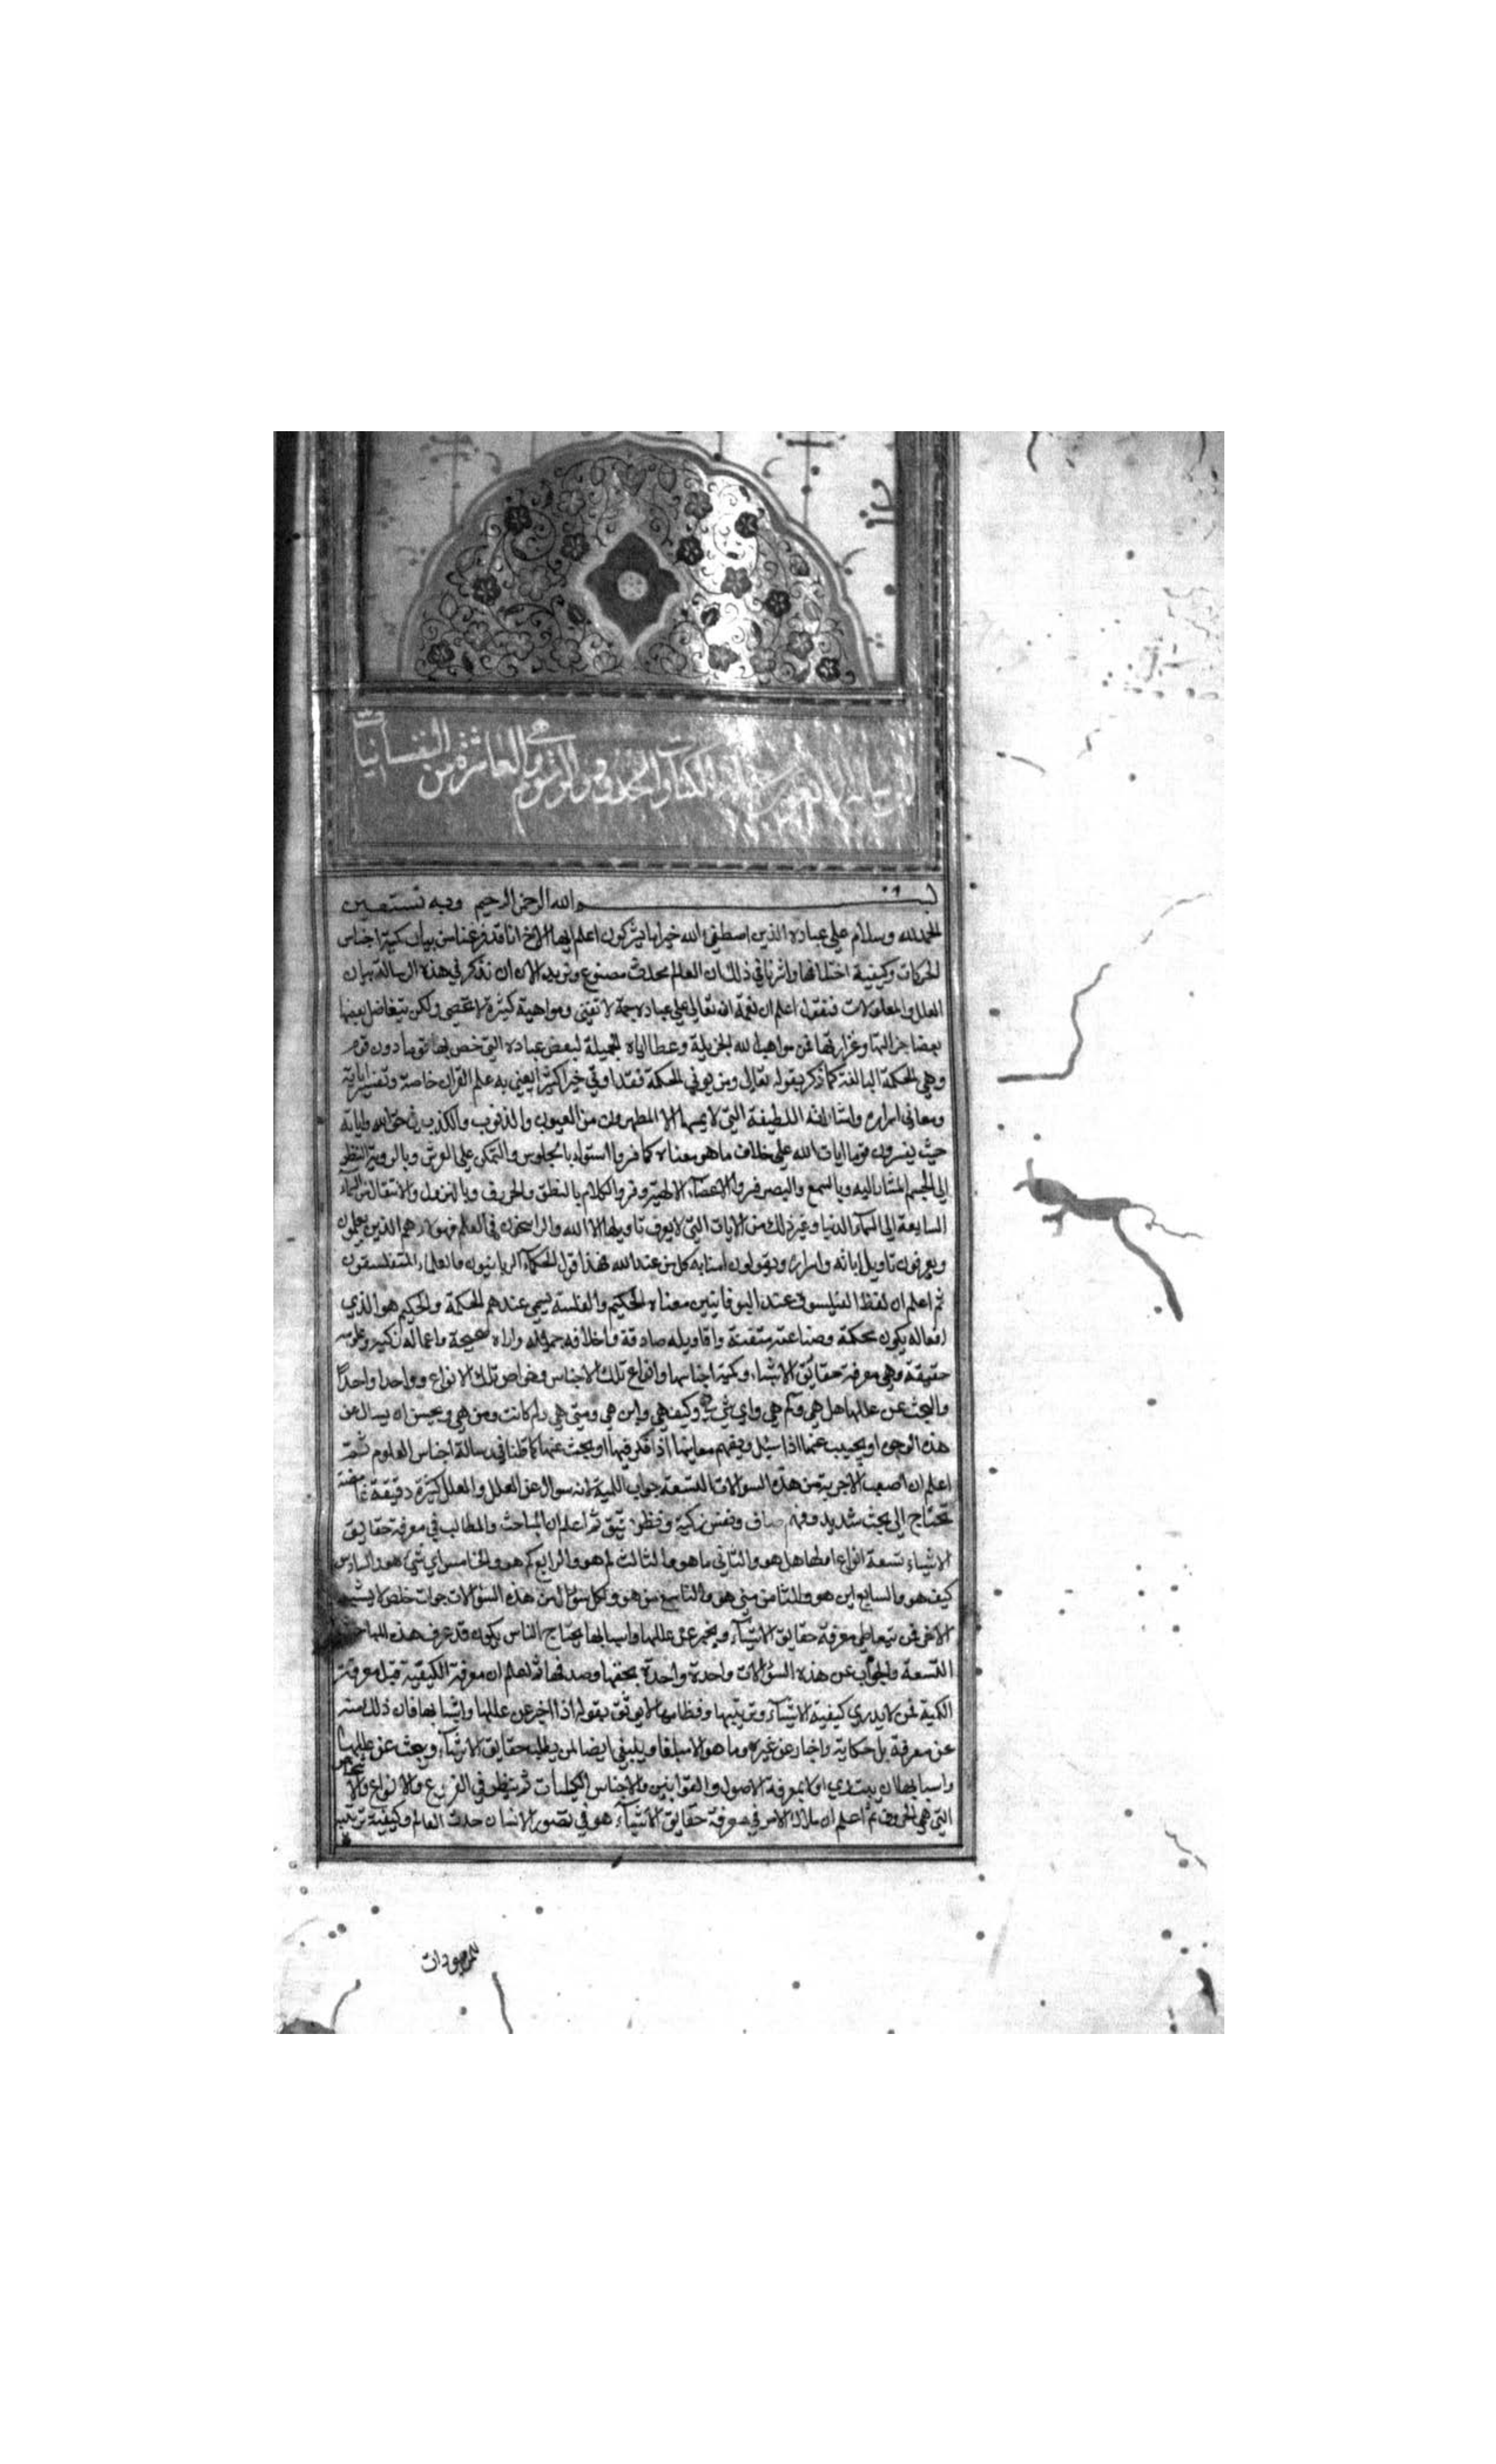 الكتاب والحدود والرسوم وهي العاشرة من النفسانيات
بسم الله الرحمن الرحيم وبه نستعين
الحمد لله وسلام على عباده الذين اصطفى الله خير اما يشركون اعلم ايها الاخ انا قد فرغنا من بيان كمية اجناس
الحركات وكيفية اختلافها واشرنا في ذلك ان العالم محدث مصنوع ونريد الان ان نذكر في هذه الرسالة بيان
العلل والمعلولات فنقول اعلم ان نعمة الله تعالى على عباده جمة لا تفنى ومواهبه كثيرة لا تحصى ولكن يتفاضل بعضها
بعضا وغزارتها فمن مواهب الله الجزيلة وعطاياه الجميلة لبعض عباده التي خص بها قوما دون قوم
وهي الحكمة البالغة كما ذكر بقوله تعالى ومن يوتي الحكمة فقد اوتي خيرا كثيرا يعني به علم القران خاصة وتفسير اياته
ومعاني اسراره واشاراته اللطيفة التي لا يمسها الا المطهرون من العيوب والذنوب والكذب في حق الله واياته
حيث يفسرون قوما ايات الله على خلاف ما هو معناه كما فسروا استواه بالجلوس والتمكن على العرش وبالروية النظر
الى الجسم المشار اليه وبالسمع والبصر فسروا الاعضاء الالهية وفسروا الكلام بالنطق والحروف وبالنزول والانتقال من السماء
السابعة الى السماء الدنيا وغير ذلك من الايات التي لا يعرف تاويلها الا الله والراسخون في العلم فهولاء هم الذين يعلمون
ويعرفون تاويل اياته واسراره ويقولون امنا به كل من عند الله فهذا قول الحكماء الربانيون والعلماء المتفلسفون
ثم اعلم ان لفظ الفيلسوف عند اليونانيين معناه الحكيم والفلسفة يسمى عندهم الحكمة والحكيم هو الذي
افعاله يكون محكمة وصناعته متقنة واقاويله صادقة واخلاقه جميلة واراه صحيحة واعماله زكية وعلومه
حقيقة وهي معرفة حقائق الاشياء وكمية اجناسها وانواع تلك الاجناس وخواص تلك الانواع وواحدا واحدا
والبحث عن عللها هل هي وكم هي واي شي هي وكيف هي واين هي ومتى هي ولم كانت ومن هي ويحسن ان يسال عن
هذه الوجوه او يجيب عنها اذا سئل ويفهم معانيها اذا فكر فيها او بحث عنها كما ظنا في رسالة اجناس العلوم ثم
اعلم ان اصعب الاجوبة من هذه السوالات التسعة جواب اللمية لانه سوال عن العلل والعلل كثيرة دقيقة غامضة
تحتاج الى بحث شديد وفهم صاف ونفس زكية ونظر دقيق ثم اعلم ان المباحث والمطالب في معرفة حقايق
الاشياء تسعة انواع اولها هل هو والثاني ما هو والثالث لم هو والرابع كم هو والخامس اي شي هو والسادس
كيف هو والسابع اين هو والثامن متى هو والتاسع من هو ولكل سوال من هذه السؤالات جواب خاص لا يشبه
الاخر فمن يتعاطى معرفة حقايق الاشياء ويخبر عن عللها واسبابها يحتاج الناس يكون قد عرف هذه المباحث
التسعة والجواب عن هذه السؤالات واحدة واحدة بحقها وصدقها ثم اعلم ان معرفة الكيفية قبل معرفة
الكمية فمن لا يدري كيفية الاشياء وترتيبها ونظامها لا يوثق بقوله اذا اخبر عن عللها واسبابها فان ذلك منه
عن معرفة بل حكاية واخبار عن غيره وينبغي ايضا لمن يطلب حقايق الاشياء ويبحث عن عللها
واسبابها ان يبتدي اولا بمعرفة الاصول والقوانين والاجناس الكليات ثم ينظر في الفروع والانواع والاشخاص
التي هي الجزويات ثم اعلم ان ملاك الامر في معرفة حقايق الاشياء هو في تصور الانسان حدث العالم وكيفية ترتيبه
للموجودات